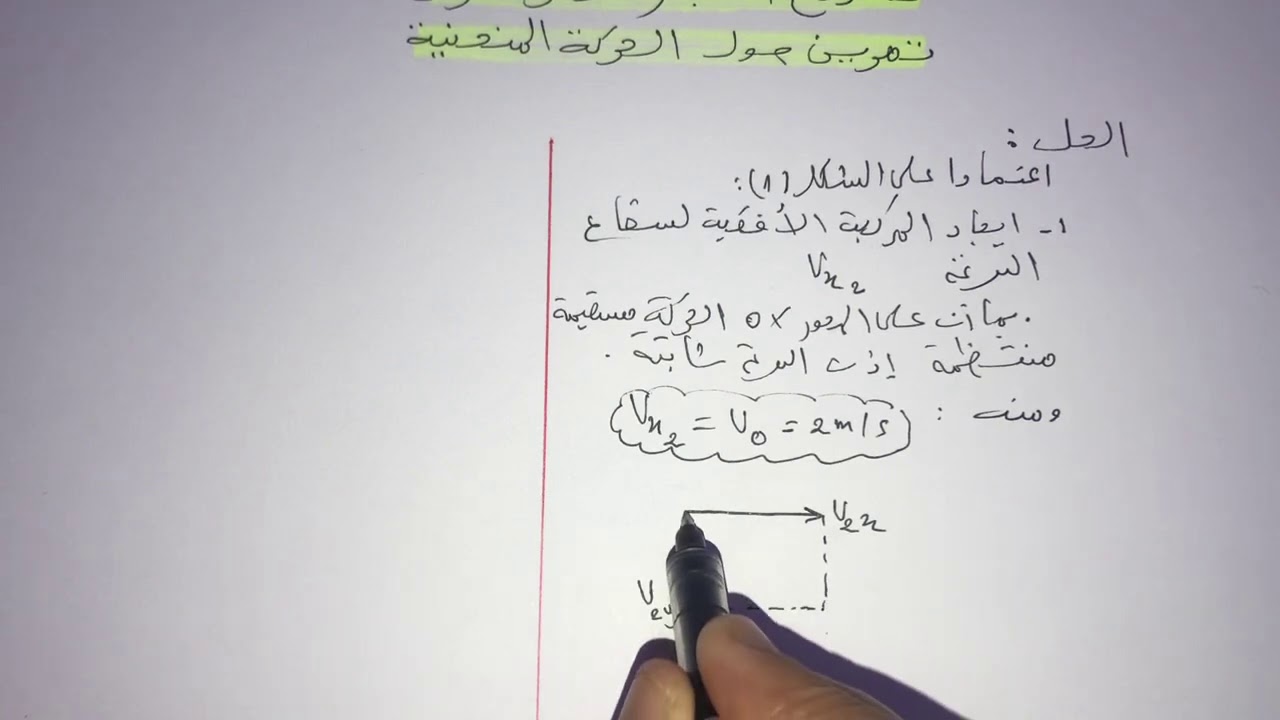 تمرين حول الحركة المنحنية
الحل :
اعتمادا على الشكل (1):
1- ايجاد المركبة الأفقية لشعاع
السرعة Vx2
. بما أن على المحور ox الحركة مستقيمة
منتظمة إذن السرعة ثابتة .
ومنه : Vx2 = V0 = 2m/s
V2x
V2y